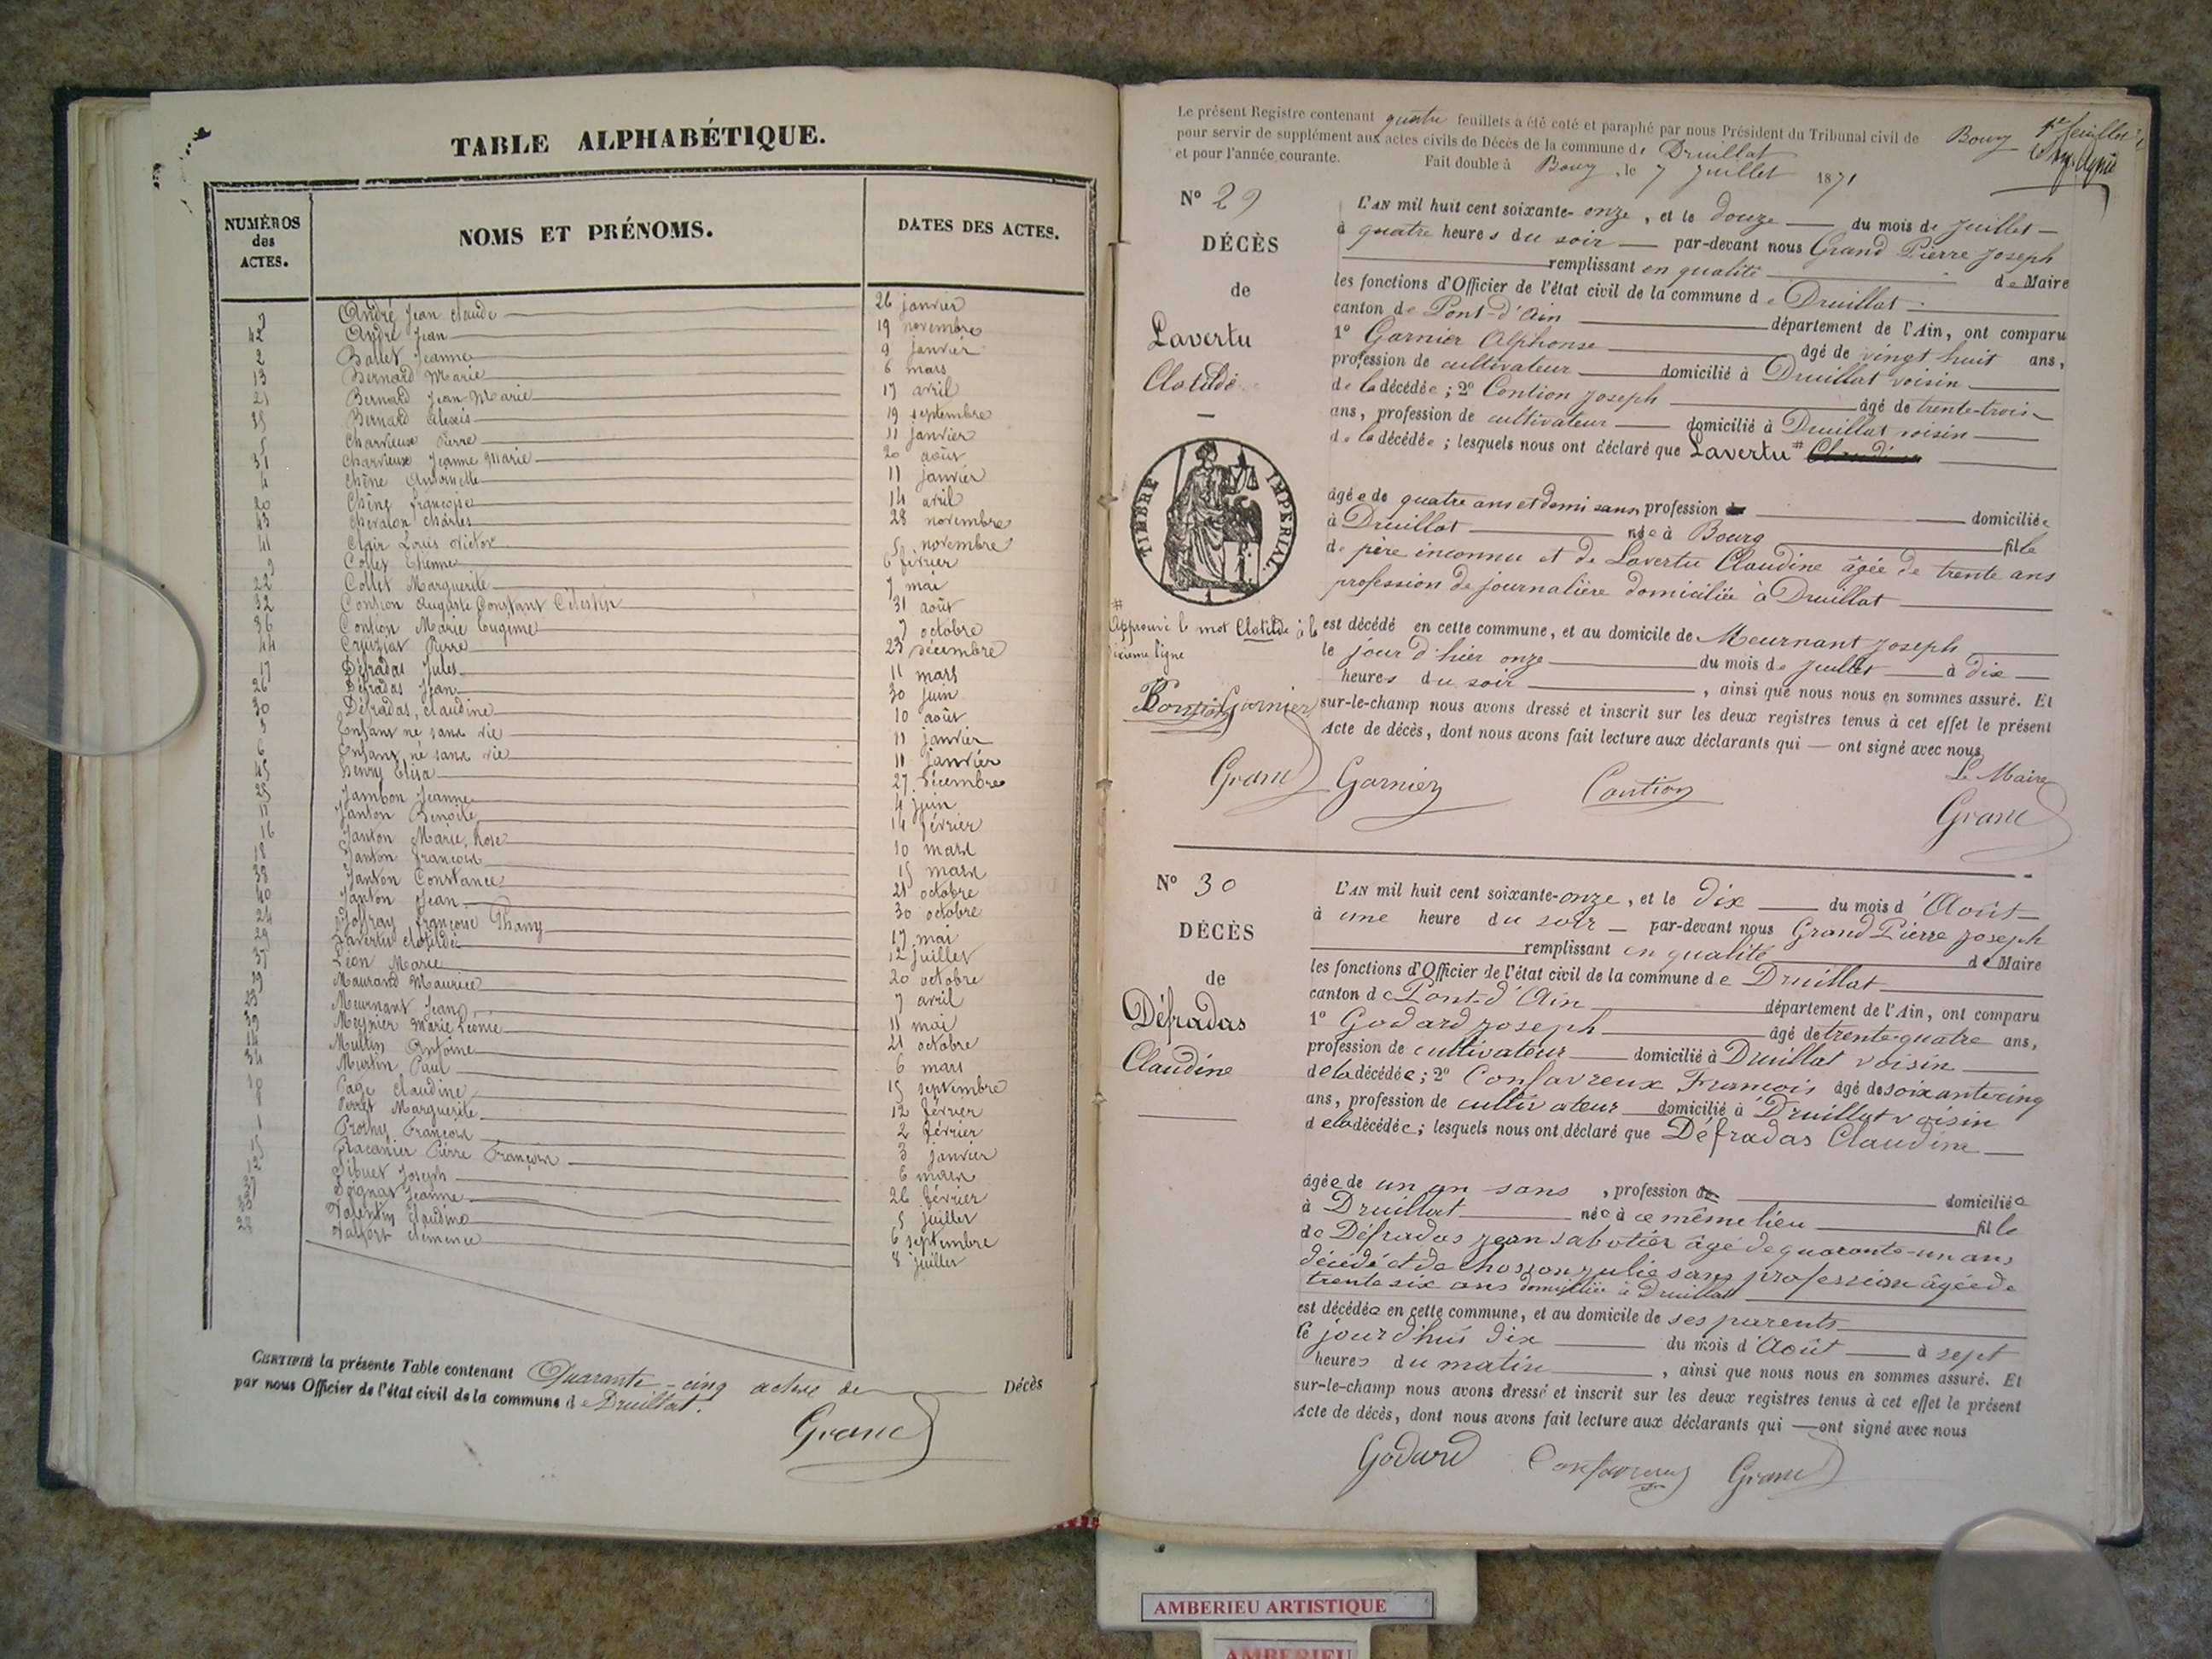 TABLE ALPHABÉTIQUE.
NUMÉROS des ACTES.
NOMS ET PRÉNOMS.
DATES DES ACTES.
7 André Jean Claude 26 janvier
42 André Jean 19 novembre
2 Ballet Jeanne 9 janvier
13 Bernard Marie 6 mars
21 Bernard Jean Marie 17 avril
35 Bernard Alexis 19 septembre
5 Charvieux Pierre 11 janvier
31 Charvieux Jeanne Marie 20 août
4 Chêne Antoinette 11 janvier
20 Chêne françoise 14 avril
43 Chevalon Charles 28 novembre
41 Clair Louis Victor 5 novembre
9 Collet Etienne 6 février
22 Collet Marguerite 7 mai
32 Contion Auguste Constant Célestin 31 août
36 Contion Marie Eugénie 7 octobre
44 Cruiziat Pierre 23 décembre
17 Défradas Jules 11 mars
26 Défradas Jean 30 juin
30 Défradas, Claudine 10 août
3 Enfant né sans vie 11 janvier
6 Enfant né sans vie 11 janvier
45 Henry Elisa 27 décembre
25 Jambon Jeanne 4 juin
11 Janton Benoite 14 février
16 Janton Marie, Rose 10 mars
18 Janton François 15 mars
38 Janton Constance 21 octobre
40 Janton Jean 30 octobre
24 Joffray Françoise Phany 17 mai
29 Lavertu Clotilde 12 juillet
37 Léon Marie 20 octobre
19 Maurand Maurice 7 avril
23 Meurnant Jean 11 mai
39 Meynier Marie Léonie 21 octobre
14 Multin Antoine 6 mars
34 Murtin Paul 15 septembre
10 Page Claudine 12 février
8 Perret Marguerite 2 février
1 Prothy François 3 janvier
15 Racanier Pierre François 6 mars
12 Sibuet Joseph 26 février
27 Soignat Jeanne 5 juillet
33 Valentin Claudine 6 septembre
28 Valfort Clémence 8 juillet
CERTIFIÉ la présente Table contenant Quarante-cinq actes de Décès
par nous Officier de l'état civil de la commune de Druillat.
Grand
Le présent Registre contenant quatre feuillets a été coté et paraphé par nous Président du Tribunal civil de Bourg
pour servir de supplément aux actes civils de Décès de la commune de Druillat
et pour l'année courante. Fait double à Bourg, le 7 Juillet 1871
1er feuillet
N° 29
DÉCÈS
de
Lavertu
Clotilde
TIMBRE IMPÉRIAL.
L'AN mil huit cent soixante-onze, et le douze du mois de Juillet
à quatre heures du soir par-devant nous Grand Pierre Joseph
remplissant en qualité de Maire
les fonctions d'Officier de l'état civil de la commune de Druillat
canton de Pont-d'Ain département de l'Ain, ont comparu
1° Garnier Alphonse âgé de vingt huit ans,
profession de cultivateur domicilié à Druillat voisin
de la décédée; 2° Contion Joseph âgé de trente-trois
ans, profession de cultivateur domicilié à Druillat voisin
de la décédée; lesquels nous ont déclaré que Lavertu # Claudine
âgée de quatre ans et demi sans profession de domiciliée
à Druillat née à Bourg fille
de père inconnu et de Lavertu Claudine âgée de trente ans
profession de journalière domiciliée à Druillat
est décédé en cette commune, et au domicile de Meurnant Joseph
le jour d'hier onze du mois de Juillet à dix
heures du soir, ainsi que nous nous en sommes assuré. Et
sur-le-champ nous avons dressé et inscrit sur les deux registres tenus à cet effet le présent
Acte de décès, dont nous avons fait lecture aux déclarants qui ont signé avec nous
# Approuvé le mot Clotilde à la
dixième ligne
Contion Garnier
Grand Garnier Contion
Le Maire
Grand
N° 30
DÉCÈS
de
Défradas
Claudine
L'AN mil huit cent soixante-onze, et le dix du mois d'Août
à une heure du soir par-devant nous Grand Pierre Joseph
remplissant en qualité de Maire
les fonctions d'Officier de l'état civil de la commune de Druillat
canton de Pont-d'Ain département de l'Ain, ont comparu
1° Godard Joseph âgé de trente-quatre ans,
profession de cultivateur domicilié à Druillat voisin
de la décédée; 2° Confavreux François âgé de soixante cinq
ans, profession de cultivateur domicilié à Druillat voisin
de la décédée; lesquels nous ont déclaré que Défradas Claudine
âgée de un an sans, profession de domiciliée
à Druillat née à ce même lieu fille
de Défradas Jean sabotier âgé de quarante-un ans
décédé et de Chosson Julie sans profession âgée de
trente six ans domiciliée à Druillat
est décédée en cette commune, et au domicile de ses parents
le jour d'hui dix du mois d'Août à sept
heures du matin, ainsi que nous nous en sommes assuré. Et
sur-le-champ nous avons dressé et inscrit sur les deux registres tenus à cet effet le présent
Acte de décès, dont nous avons fait lecture aux déclarants qui ont signé avec nous
Godard Confavreux Grand
AMBERIEU ARTISTIQUE
AMBERIEU